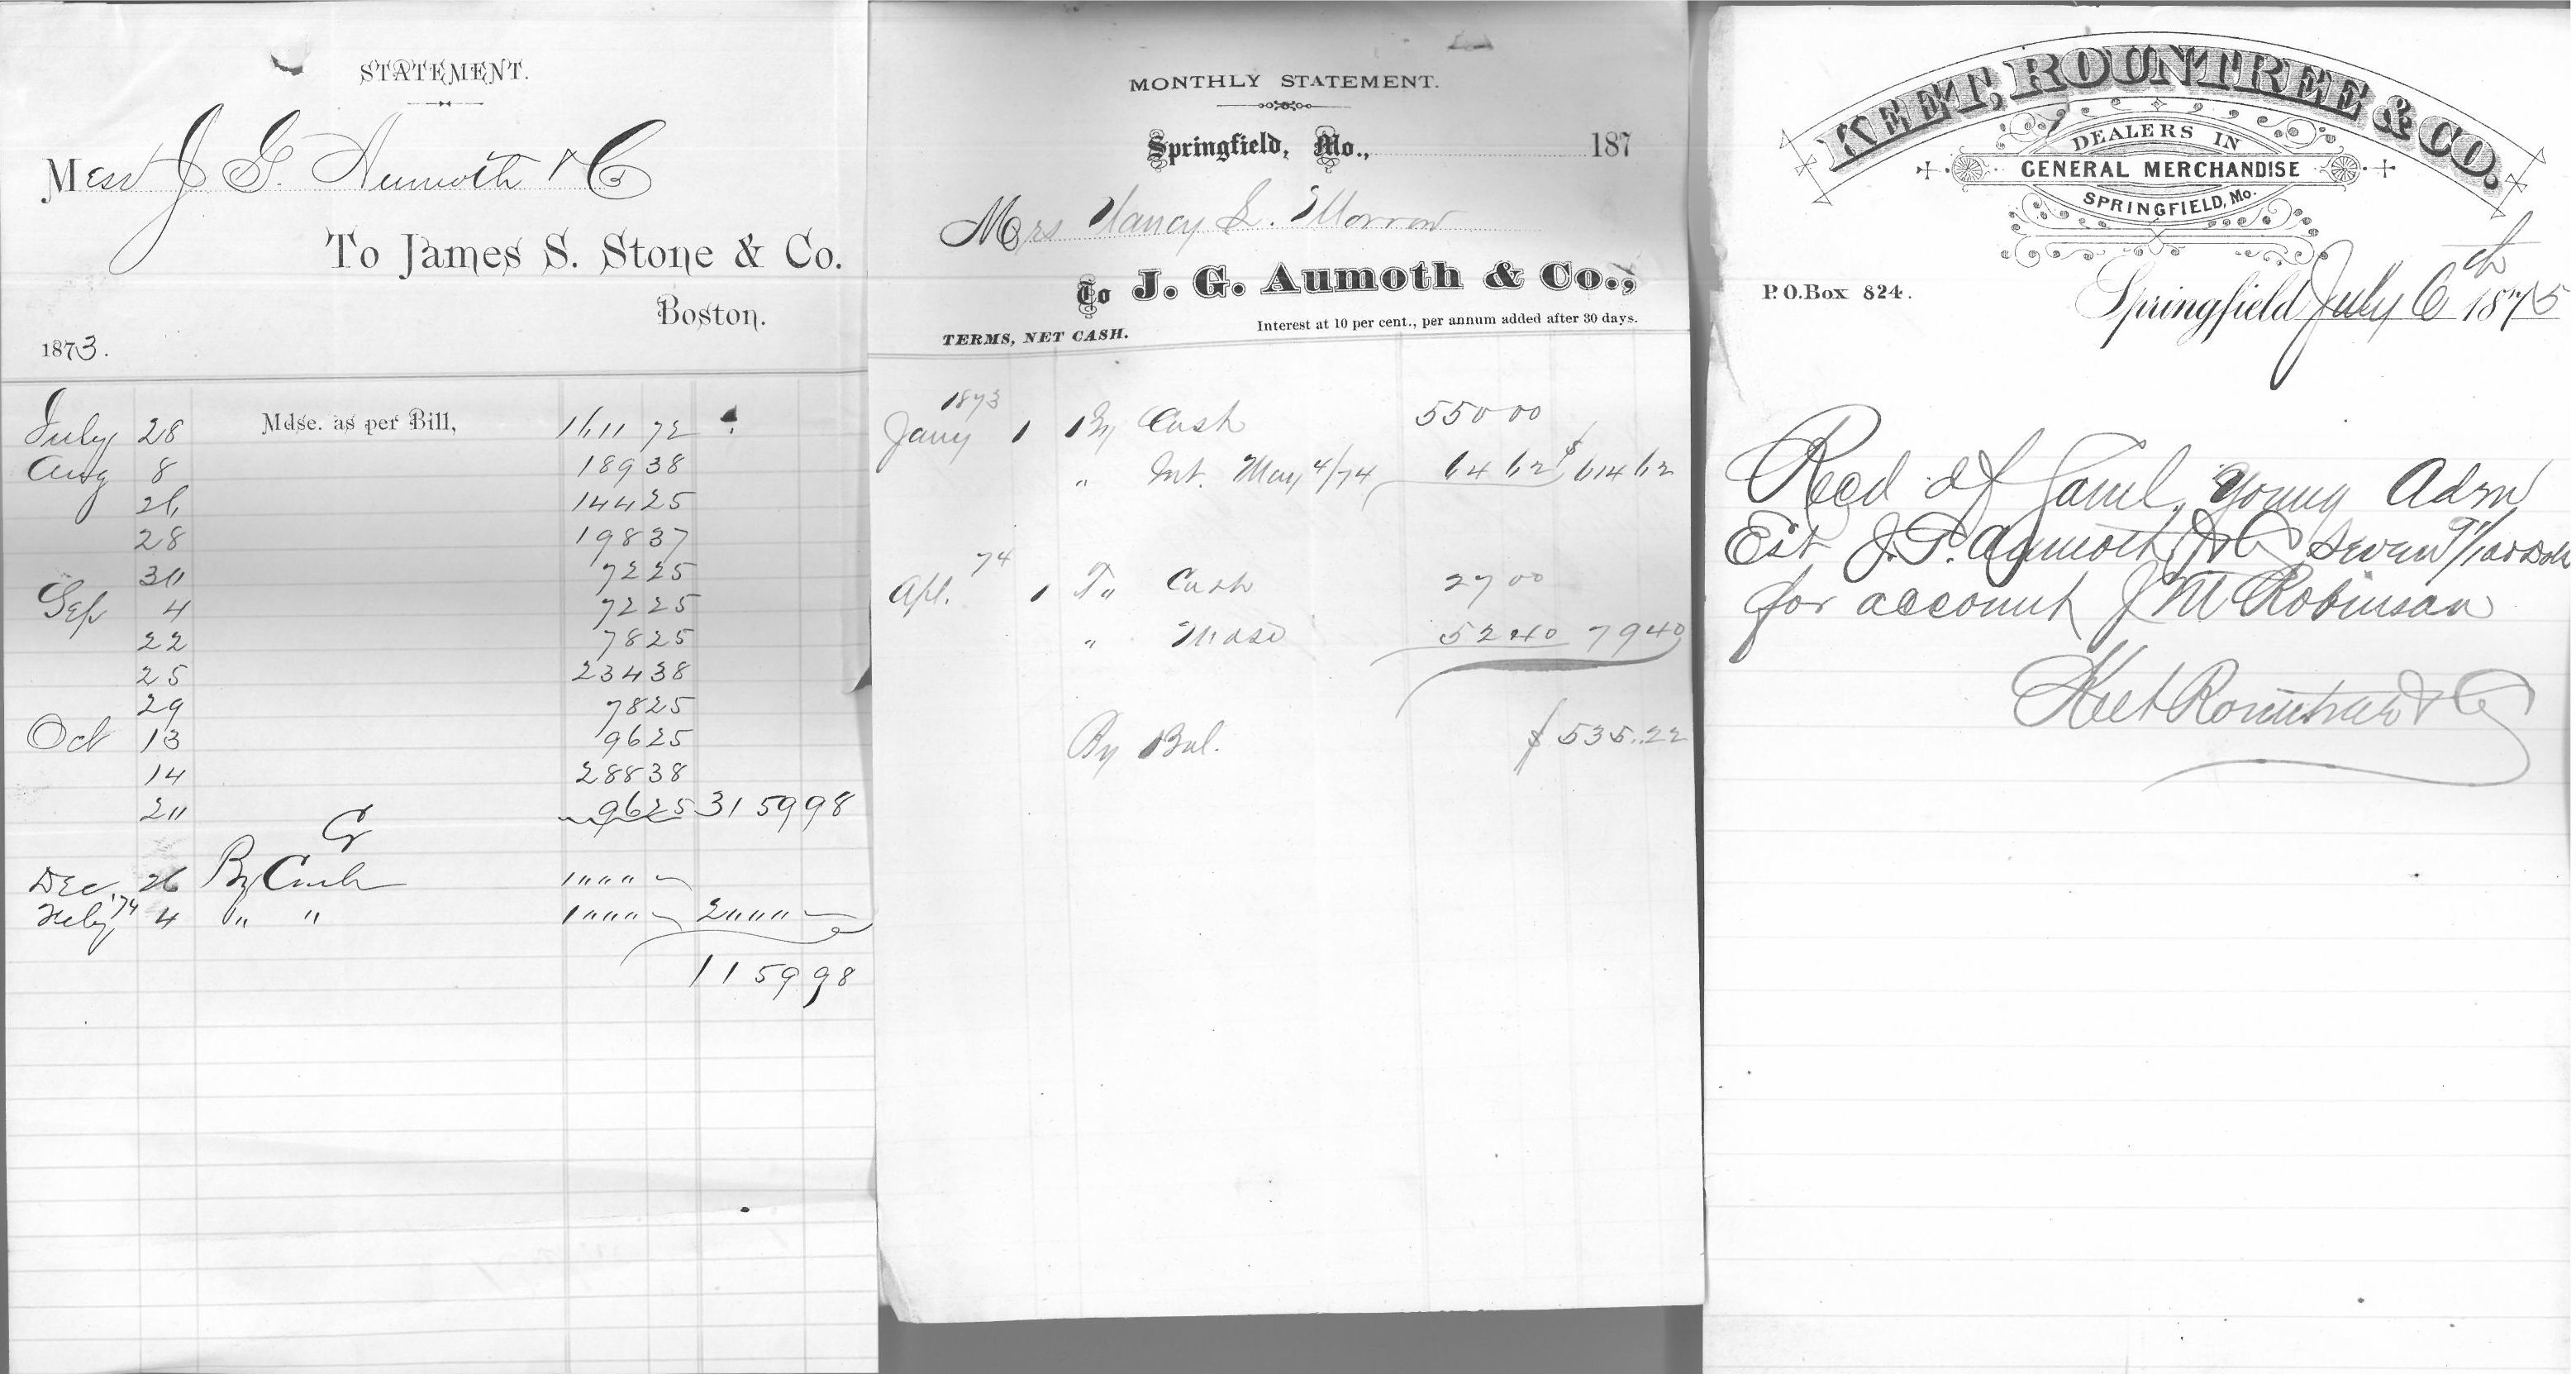 STATEMENT.
Mess J. G. Aumoth & Co
To James S. Stone & Co.
Boston.
1873.
July 28 Mdse. as per Bill, 1611 72
Aug 8 189 38
26 144 25
28 198 37
30 72 25
Sep 4 72 25
22 78 25
25 234 38
29 78 25
Oct 13 96 25
14 288 38
20 96 25 3159 98
Cr
Dec. 26 By Cash 1000 –
Feby '74 4 " " 1000 – 2000 –
1159 98
MONTHLY STATEMENT.
Springfield, Mo., 187
Mrs Nancy L. Morrow
To J. G. Aumoth & Co.,
TERMS, NET CASH. Interest at 10 per cent., per annum added after 30 days.
1873
Jany 1 By Cash 550 00
" Int. May 4/74 64 62 $ 614 62
74
Apl. 1 To Cash 27 00
" Mdse 52 40 79 40
By Bal. $ 535.22
KEET, ROUNTREE & CO.
DEALERS IN
GENERAL MERCHANDISE
SPRINGFIELD, Mo.
P.O. Box 824. Springfield July 6th 1875
Recd of Saml. Young Adm
Est J. G. Aumoth & Co Seven 91/100 Dols
for account J M Robinson
Keet Rountree & Co